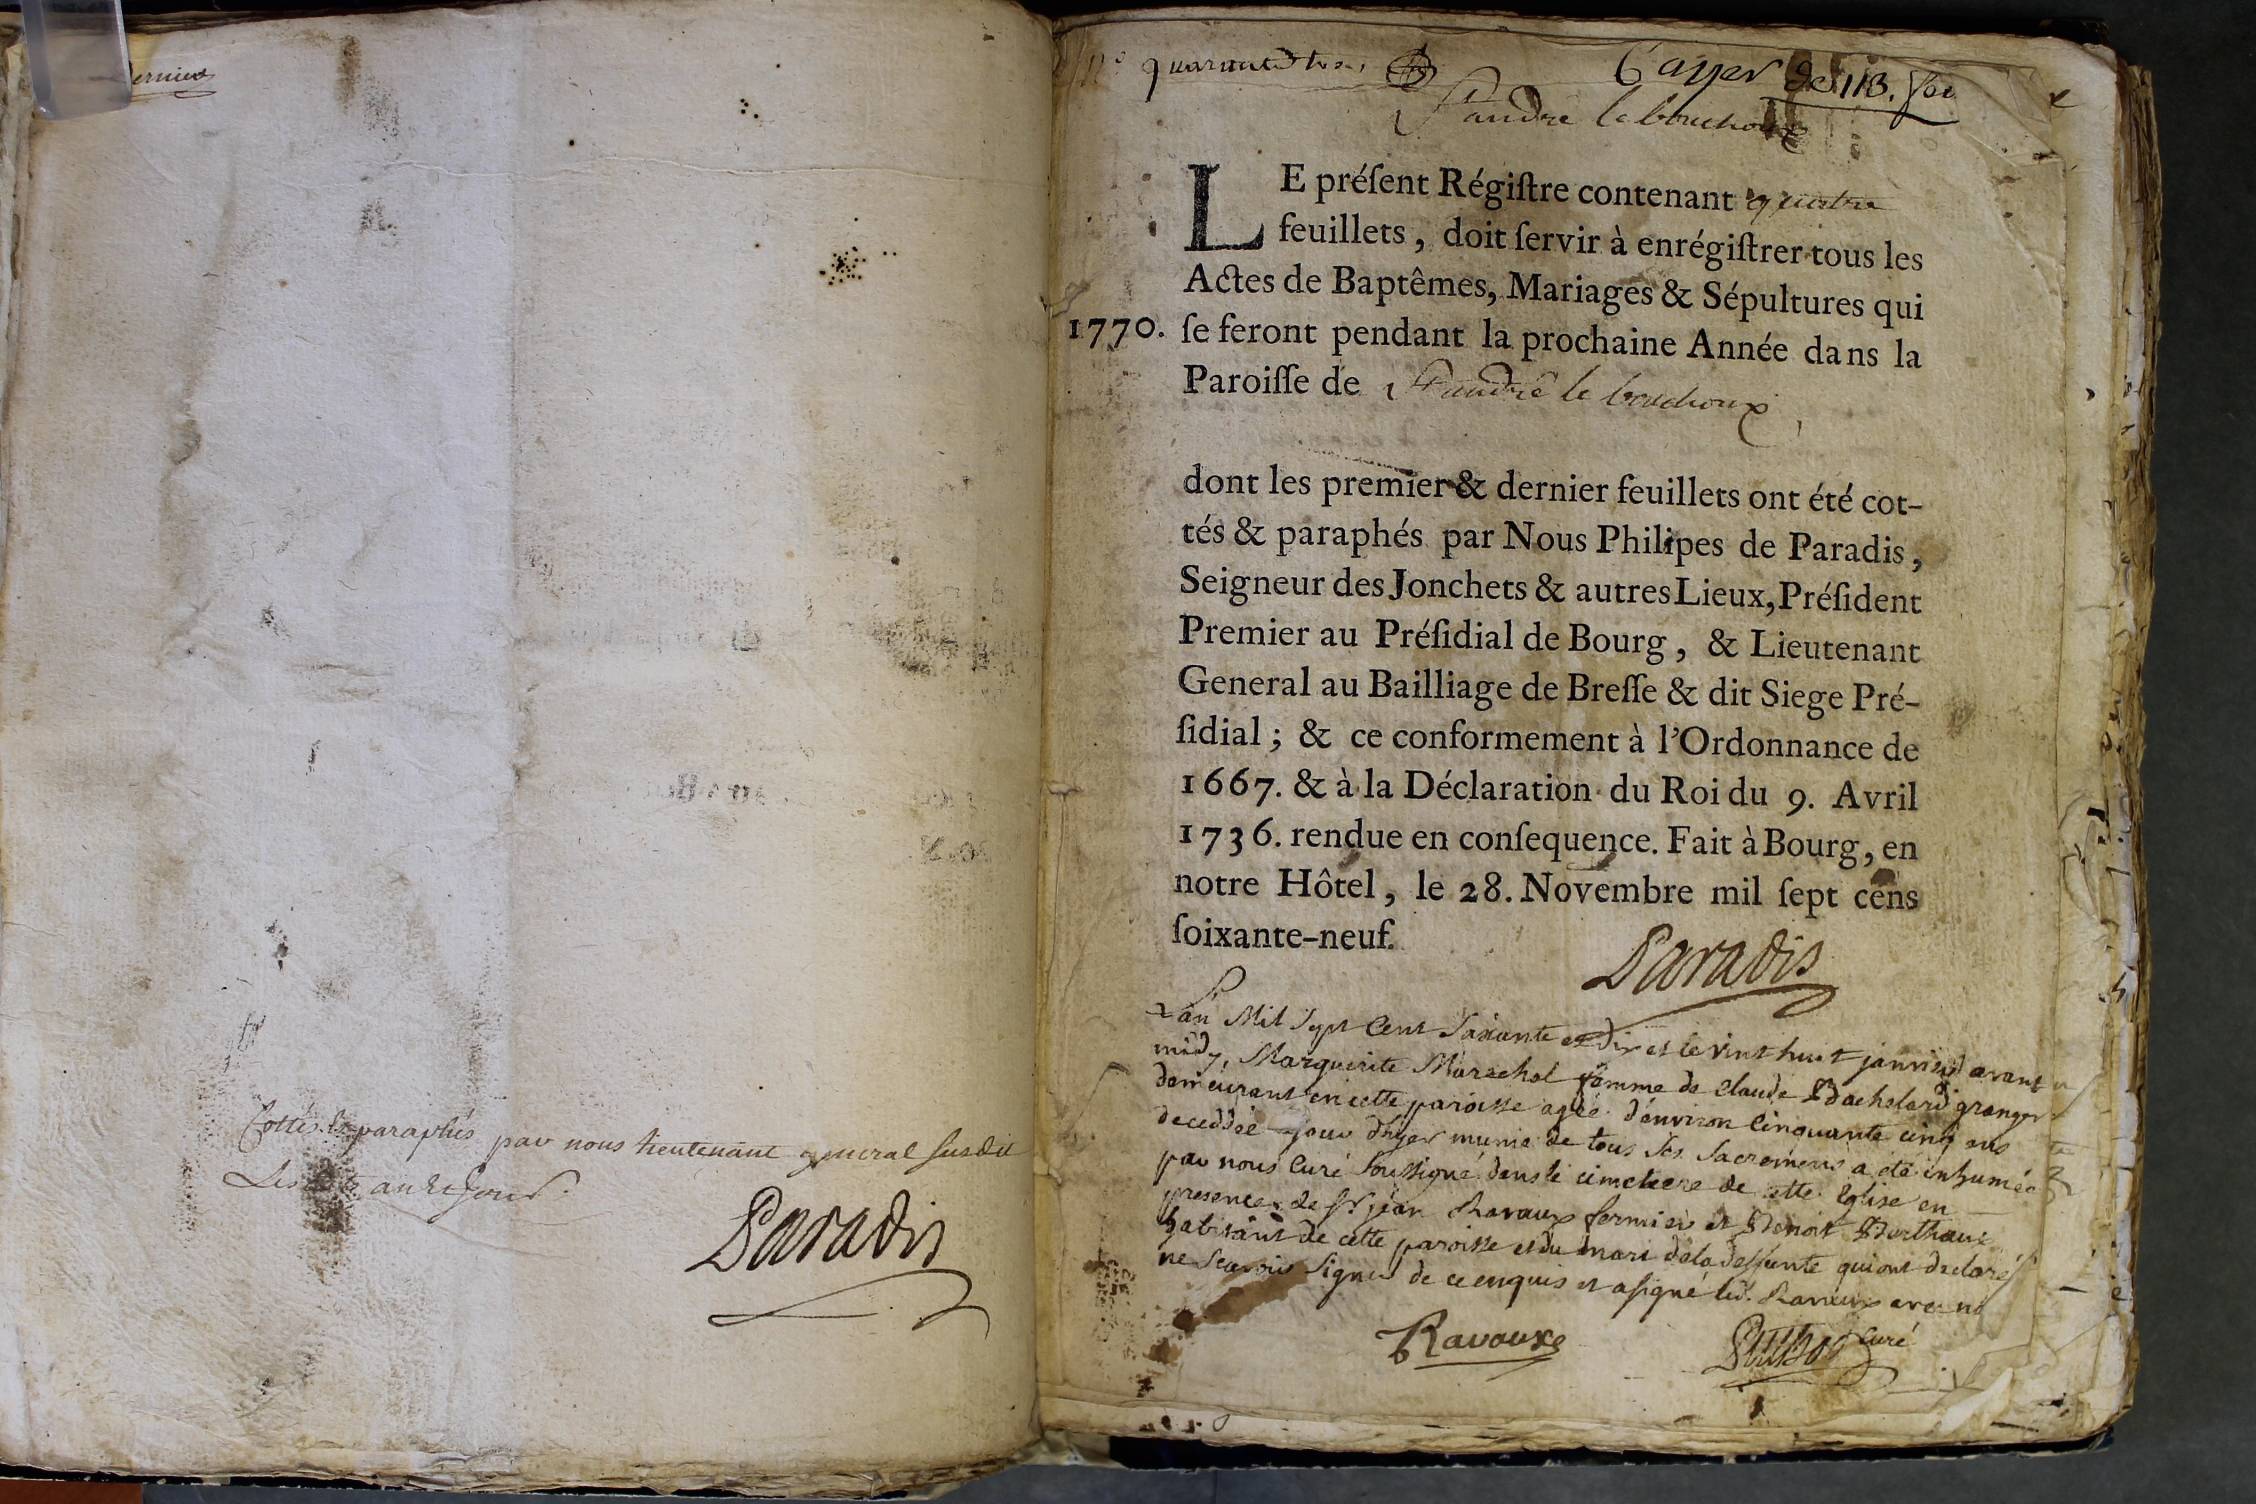 dernier
Cottés & paraphés par nous lieutenant general susdit
Les an & jour.
Paradis
quarante
Cayer de 113.
St andré le bouchoux
LE préſent Régiſtre contenant quatre
feuillets, doit ſervir à enrégiſtrer tous les
Actes de Baptêmes, Mariages & Sépultures qui
1770. ſe feront pendant la prochaine Année dans la
Paroiſſe de St andré le bouchoux
dont les premier & dernier feuillets ont été cot-
tés & paraphés par Nous Philipes de Paradis,
Seigneur des Jonchets & autres Lieux, Préſident
Premier au Préſidial de Bourg, & Lieutenant
General au Bailliage de Breſſe & dit Siege Pré-
ſidial; & ce conformement à l'Ordonnance de
1667. & à la Déclaration du Roi du 9. Avril
1736. rendue en conſequence. Fait à Bourg, en
notre Hôtel, le 28. Novembre mil ſept cens
ſoixante-neuf.
Paradis
L'an Mil Sept Cent Soixante et dix et le vint huit janvier avant
midy, Marguerite Marechal famme de Claude Bachelard granger
demeurant en cette paroisse agée d'environ Cinquante cinq ans
deceddée jour d'hyer munie de tous ses Sacremens a été inhumée
par nous Curé Soussigné dans le cimetiere de cette Eglise en
presence de Sr jean Ravaux fermier et Benoit Berthaux
habitant de cette paroisse et du mari de la deffunte qui ont declaré
ne Scavoir Signer de ce enquis et a signé led. Ravaux avec n
Ravoux
Curé